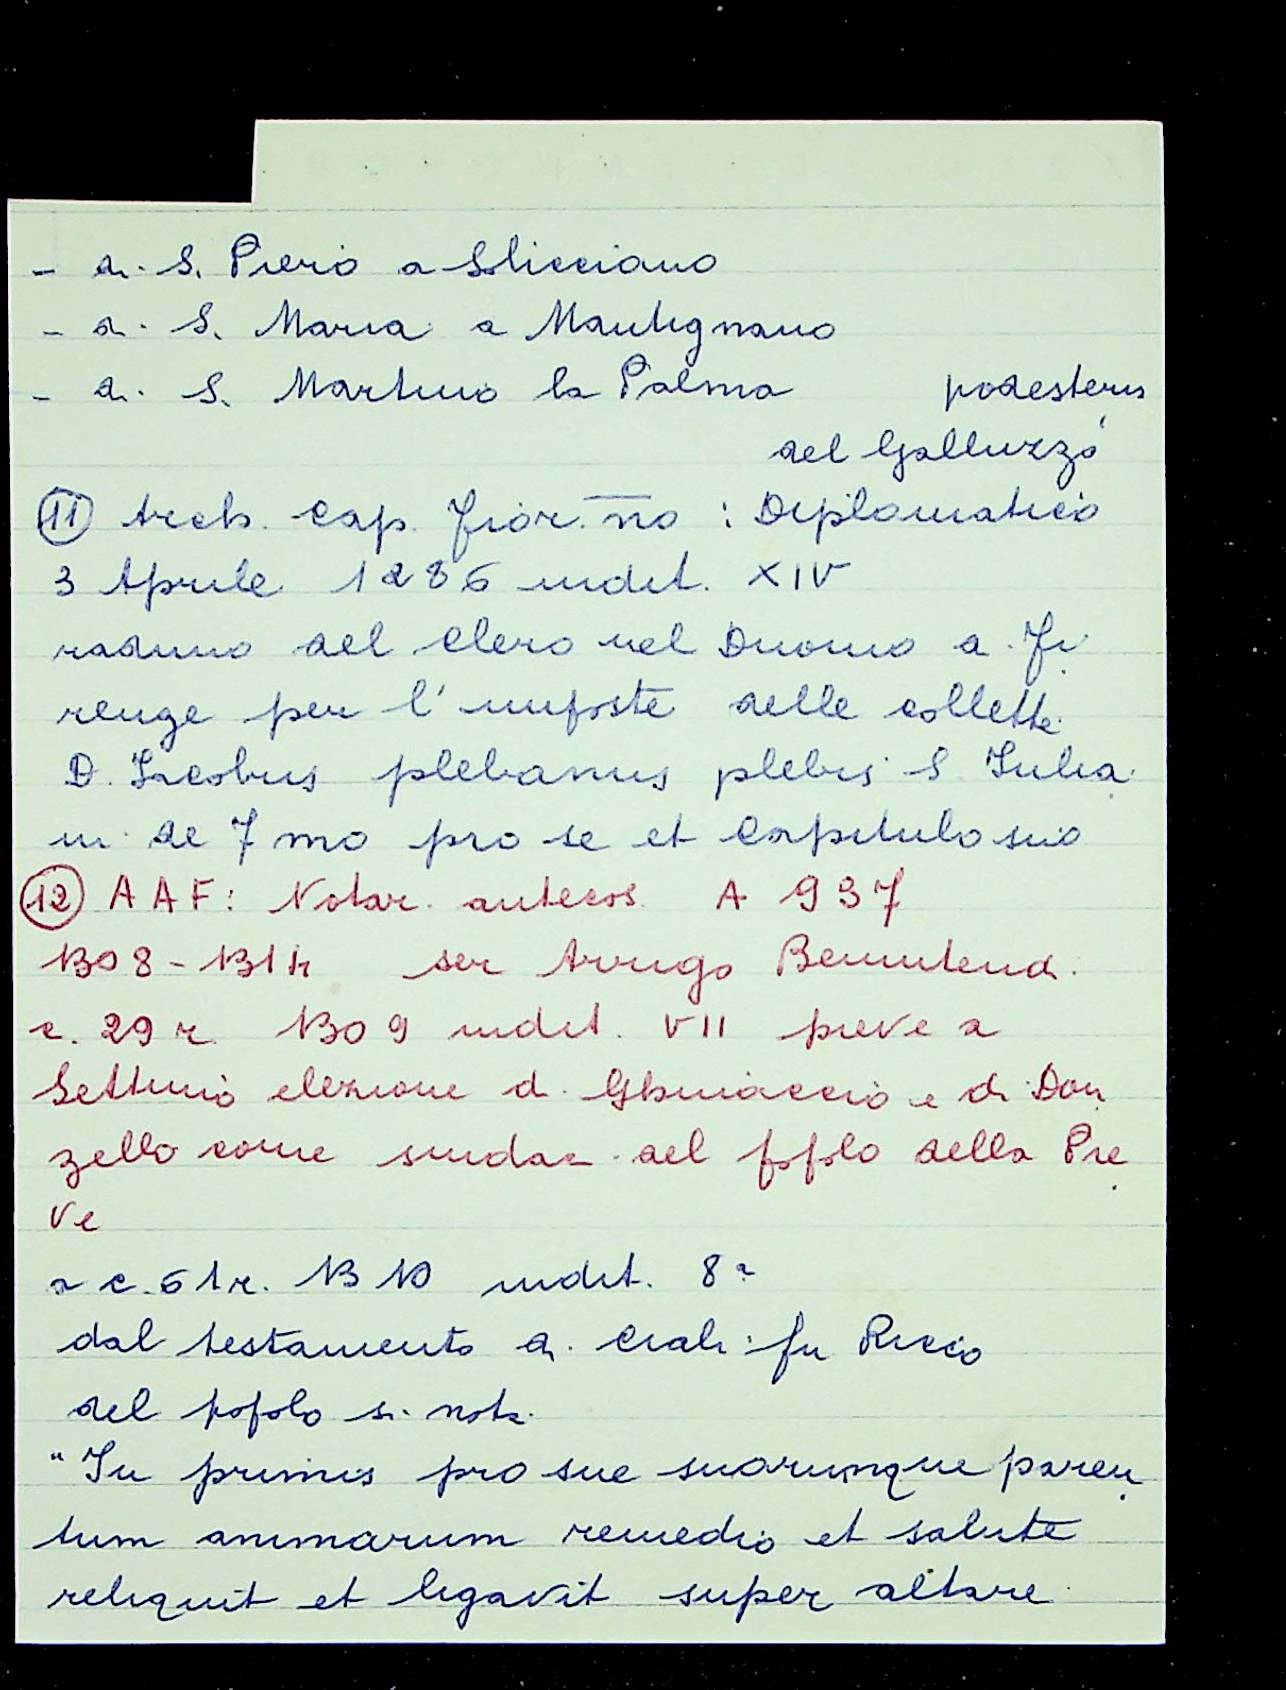 - di S. Piero a Sollicciano
- di S. Maria a Mantignano
- di S. Martino la Palma podesteria
del Galluzzo
(11) Arch. Cap. Fior.no : Diplomatico
3 Aprile 1286 indit. XIV
raduno del Clero nel Duomo di Fi
renze per l'imposte delle collette
D. Iacobus plebanus plebis S. Iulia
ni de 7mo pro se et Capitulo suo
(12) AAF: Notar. antecos. A 937
1308-1314 ser Arrigo Benintend.
c. 29 r. 1309 indit. VII pieve a
Settimo elezione di Ghinaccio e di Don
zello come sindac. del popolo della Pie
ve
a c. 61r. 1310 indit. 8a
dal testamento di Ciali fu Ricco
del popolo si nota
"In primis pro sue suorumque paren
tum animarum remedio et salute
reliquit et legavit super altare